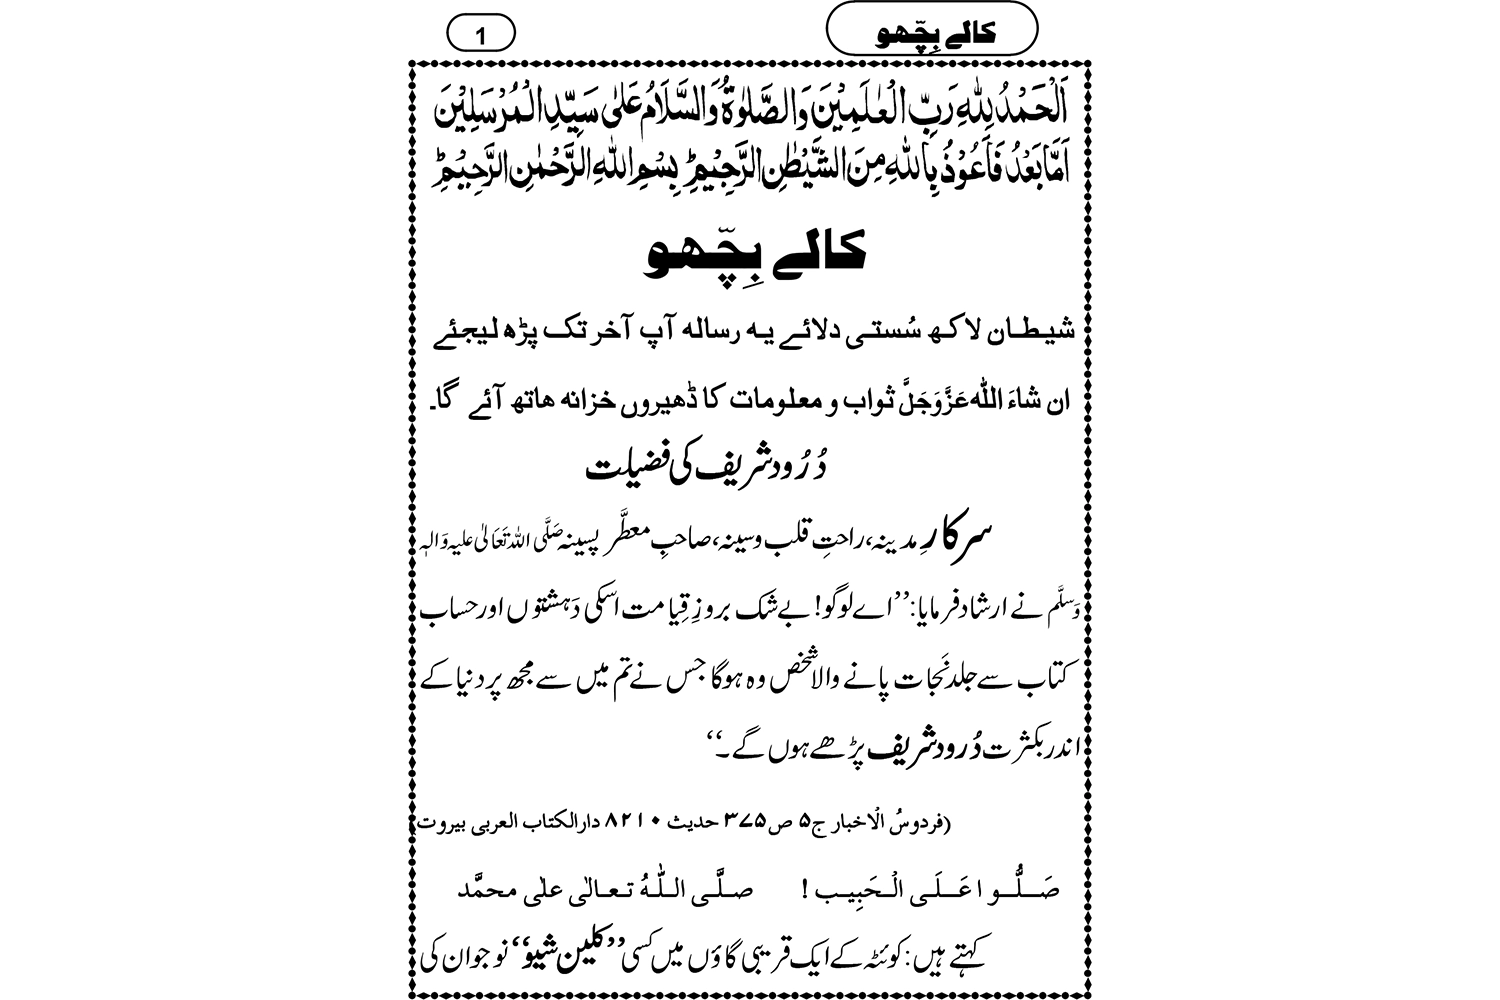 کالے بِچّھو
1
اَلْحَمْدُ لِلّٰهِ رَبِّ الْعٰلَمِيْنَ وَالصَّلٰوةُ وَالسَّلَامُ عَلٰى سَيِّدِ الْمُرْسَلِيْنَ
اَمَّا بَعْدُ فَاَعُوْذُ بِاللّٰهِ مِنَ الشَّيْطٰنِ الرَّجِيْمِ ؕ بِسْمِ اللّٰهِ الرَّحْمٰنِ الرَّحِيْمِ ؕ
کالے بِچّھو
شیطان لاکھ سُستی دلائے یہ رسالہ آپ آخر تک پڑھ لیجئے
ان شاءَ اللّٰہ عَزَّوَجَلَّ ثواب و معلومات کا ڈھیروں خزانہ ھاتھ آئے گا۔
دُرُود شریف کی فضیلت
سرکارِ مدینہ، راحتِ قلب وسینہ، صاحبِ معطَّر پسینہ صَلَّی اللہ تَعَالٰی علیہ وَالہٖ
وَسلَّم نے ارشاد فرمایا: ’’اے لوگو! بے شک بروزِ قِیامت اسکی دَہشتوں اور حساب
کتاب سے جلد نَجات پانے والا شخص وہ ہوگا جس نے تم میں سے مجھ پر دنیا کے
اندر بکثرت دُرود شریف پڑھے ہوں گے۔‘‘
(فردوسُ الْاخبار ج۵ ص۳۷۵ حدیث ۸۲۱۰ دارالکتاب العربی بیروت)
صَلُّوا عَلَی الْحَبِیب ! صلَّی اللّٰہُ تعالٰی علٰی محمَّد
کہتے ہیں: کوئٹہ کے ایک قریبی گاؤں میں کسی ’’کلین شیو‘‘ نوجوان کی